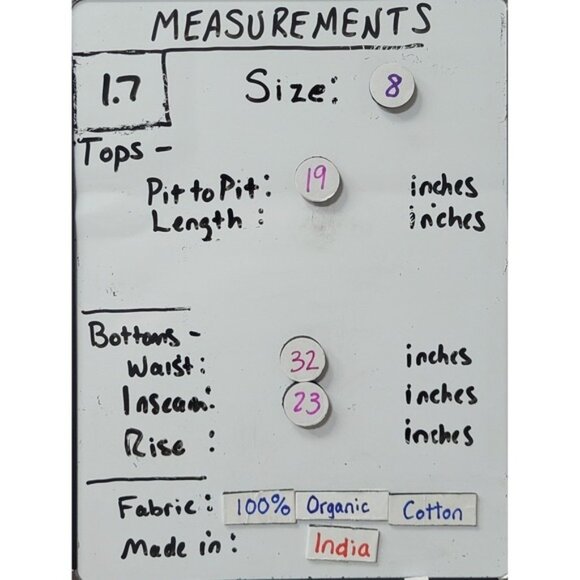 MEASUREMENTS
1.7 Size: 8
Tops -
Pit to Pit: 19 inches
Length : inches
Bottoms -
Waist: 32 inches
Inseam: 23 inches
Rise : inches
Fabric: 100% Organic Cotton
Made in: India